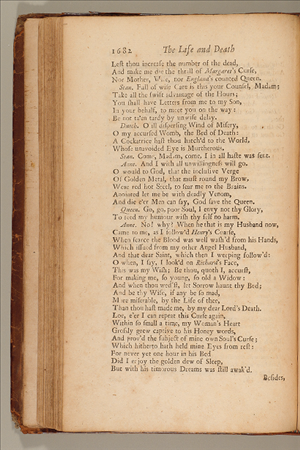 1682 The Life and Death
Lest thou increase the number of the dead,
And make me die the thrall of Margaret's Curse,
Nor Mother, Wife, nor England's counted Queen.
Stan. Full of wise Care is this your Counsel, Madam;
Take all the swift advantage of the Hours;
You shall have Letters from me to my Son,
In your behalf, to meet you on the way:
Be not ta'en tardy by unwise delay.
Dutch. O ill dispersing Wind of Misery,
O my accursed Womb, the Bed of Death:
A Cockatrice hast thou hatch'd to the World,
Whose unavoided Eye is Murtherous.
Stan. Come, Madam, come, I in all haste was sent.
Anne. And I with all unwillingness will go.
O would to God, that the inclusive Verge
Of Golden Metal, that must round my Brow,
Were red hot Steel, to sear me to the Brains.
Annointed let me be with deadly Venom,
And die e'er Men can say, God save the Queen.
Queen. Go, go, poor Soul, I envy not thy Glory,
To feed my humour wish thy self no harm.
Anne. No! why? When he that is my Husband now,
Came to me, as I follow'd Henry's Coarse,
When scarce the Blood was well wash'd from his Hands,
Which issued from my other Angel Husband,
And that dear Saint, which then I weeping follow'd:
O when, I say, I look'd on Richard's Face,
This was my Wish; Be thou, quoth I, accurst,
For making me, so young, so old a Widow:
And when thou wed'st, let Sorrow haunt thy Bed;
And be thy Wife, if any be so mad,
More miserable, by the Life of thee,
Than thou hast made me, by my dear Lord's Death.
Loe, e'er I can repeat this Curse again,
Within so small a time, my Woman's Heart
Grosly grew captive to his Honey words,
And prov'd the subject of mine own Soul's Curse:
Which hitherto hath held mine Eyes from rest:
For never yet one hour in his Bed
Did I enjoy the golden dew of Sleep,
But with his timorous Dreams was still awak'd.
Besides,